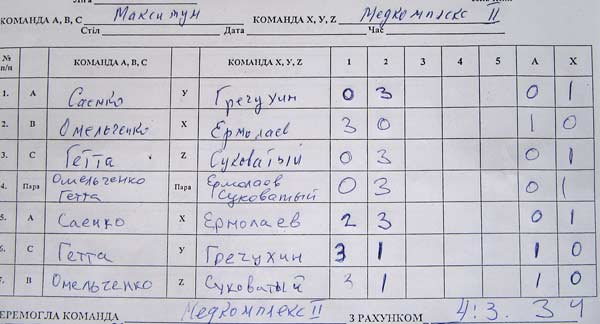 КОМАНДА А, В, С Макситун КОМАНДА Х, У, Z Медкомплекс II
Стіл Дата Час
№ п/п КОМАНДА А, В, С КОМАНДА Х, У, Z 1 2 3 4 5 А Х
1. А Саенко У Гречухин 0 3 0 1
2. В Омельченко Х Ермолаев 3 0 1 0
3. С Гетта Z Суковатый 0 3 0 1
4. Пара Омельченко Гетта Пара Ермолаев Суковатый 0 3 0 1
5. А Саенко Х Ермолаев 2 3 0 1
6. С Гетта У Гречухин 3 1 1 0
7. В Омельченко Z Суковатый 3 1 1 0
ПЕРЕМОГЛА КОМАНДА Медкомплекс II З РАХУНКОМ 4:3. 3 4